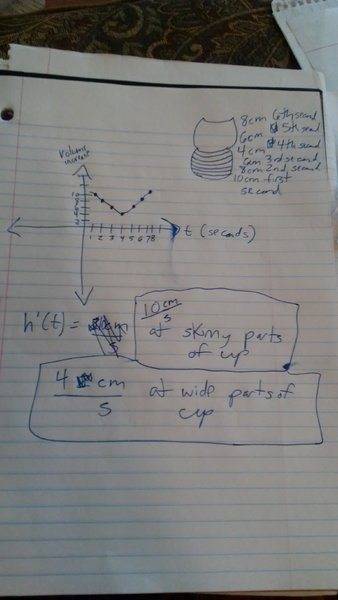 8cm 6th second
6cm 5th second
4cm 4th second
6cm 3rd second
8cm 2nd second
10cm first
second
Volume
increase
10
8
6
4
2
1 2 3 4 5 6 7 8
t (seconds)
h'(t) =
10 cm/s
at skinny parts
of cup
4 cm/s at wide parts of
cup